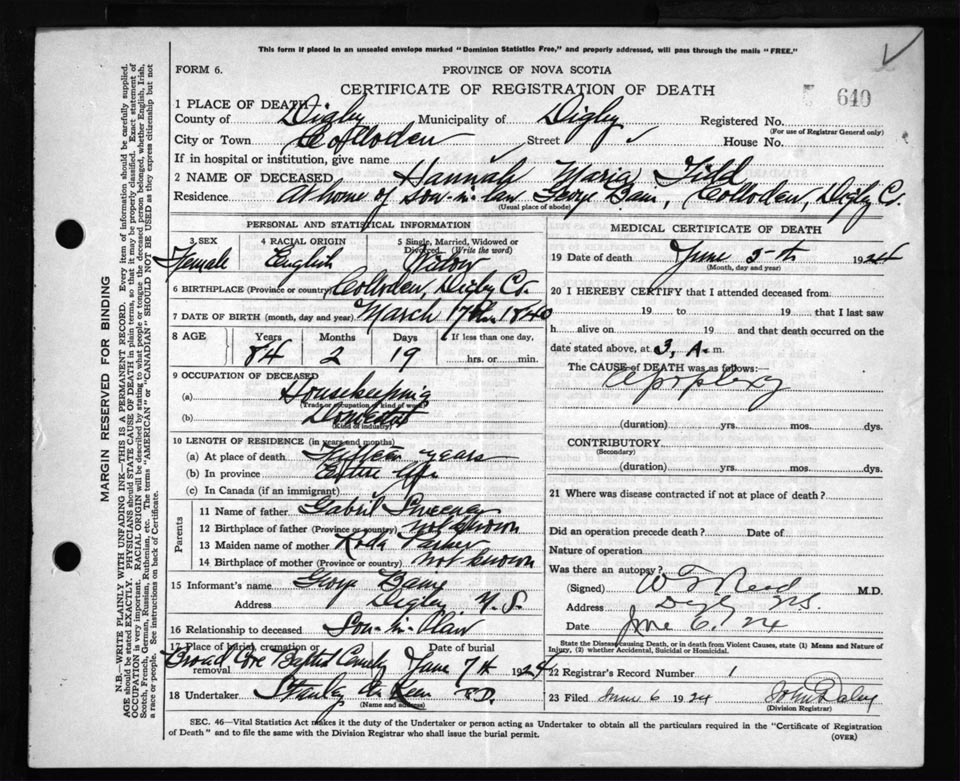 This form if placed in an unsealed envelope marked "Dominion Statistics Free," and properly addressed, will pass through the mails "FREE."
FORM 6.
PROVINCE OF NOVA SCOTIA
CERTIFICATE OF REGISTRATION OF DEATH
640
1 PLACE OF DEATH
County of Digby Municipality of Digby Registered No.
(For use of Registrar General only)
City or Town Colloden Street House No.
If in hospital or institution, give name
2 NAME OF DECEASED Hannah Maria Tidd
Residence At home of Son-in-law George Bain, Colloden, Digby Co.
(Usual place of abode)
PERSONAL AND STATISTICAL INFORMATION
3 SEX 4 RACIAL ORIGIN 5 Single, Married, Widowed or Divorced (Write the word)
Female English Widow
6 BIRTHPLACE (Province or country) Colloden, Digby Co.
7 DATE OF BIRTH (month, day and year) March 17th 1840
8 AGE Years Months Days If less than one day,
84 2 19 hrs. or min.
9 OCCUPATION OF DECEASED
(a) Housekeeping
(Trade or occupation or kind of work)
(b) Domestic
(Kind of industry)
10 LENGTH OF RESIDENCE (in years and months)
(a) At place of death Fifteen years
(b) In province Entire life
(c) In Canada (if an immigrant)
Parents
11 Name of father Gabril Sweeney
12 Birthplace of father (Province or country) not known
13 Maiden name of mother Roda
14 Birthplace of mother (Province or country) not known
15 Informant's name George Baine
Address Digby N.S.
16 Relationship to deceased Son-in-law
17 Place of burial, cremation or removal Date of burial
Broad Cove Baptist June 7th 1924
18 Undertaker Stanley
(Name and address)
MEDICAL CERTIFICATE OF DEATH
19 Date of death June 5-th 1924
(Month, day and year)
20 I HEREBY CERTIFY that I attended deceased from
19 to 19 that I last saw
h alive on 19 and that death occurred on
date stated above, at 3, A. m.
The CAUSE of DEATH was as follows:—
Apoplexy
(duration) yrs. mos. dys.
CONTRIBUTORY.
(Secondary)
(duration) yrs. mos. dys.
21 Where was disease contracted if not at place of death?
Did an operation precede death? Date of
Nature of operation
Was there an autopsy?
(Signed) M.D.
Address Digby NS.
Date June 6/24
State the Disease causing Death, or in death from Violent Causes, state (1) Means and Nature of Injury, (2) whether Accidental, Suicidal or Homicidal.
22 Registrar's Record Number 1
23 Filed June 6 1924 John Daley
(Division Registrar)
SEC. 46—Vital Statistics Act makes it the duty of the Undertaker or person acting as Undertaker to obtain all the particulars required in the "Certificate of Registration
of Death" and to file the same with the Division Registrar who shall issue the burial permit.
(OVER)
MARGIN RESERVED FOR BINDING
N.B.—WRITE PLAINLY WITH UNFADING INK—THIS IS A PERMANENT RECORD. Every item of information should be carefully supplied.
AGE should be stated EXACTLY. PHYSICIANS should STATE CAUSE OF DEATH in plain terms, so that it may be properly classified. Exact statement of
OCCUPATION is very important. RACIAL ORIGIN will be described by stating to what people or tongue the deceased person belonged, whether English, Irish,
Scotch, French, German, Russian, Ruthenian, etc. The terms "AMERICAN" or "CANADIAN" SHOULD NOT BE USED as they express citizenship but not
a race or people. See instructions on back of Certificate.